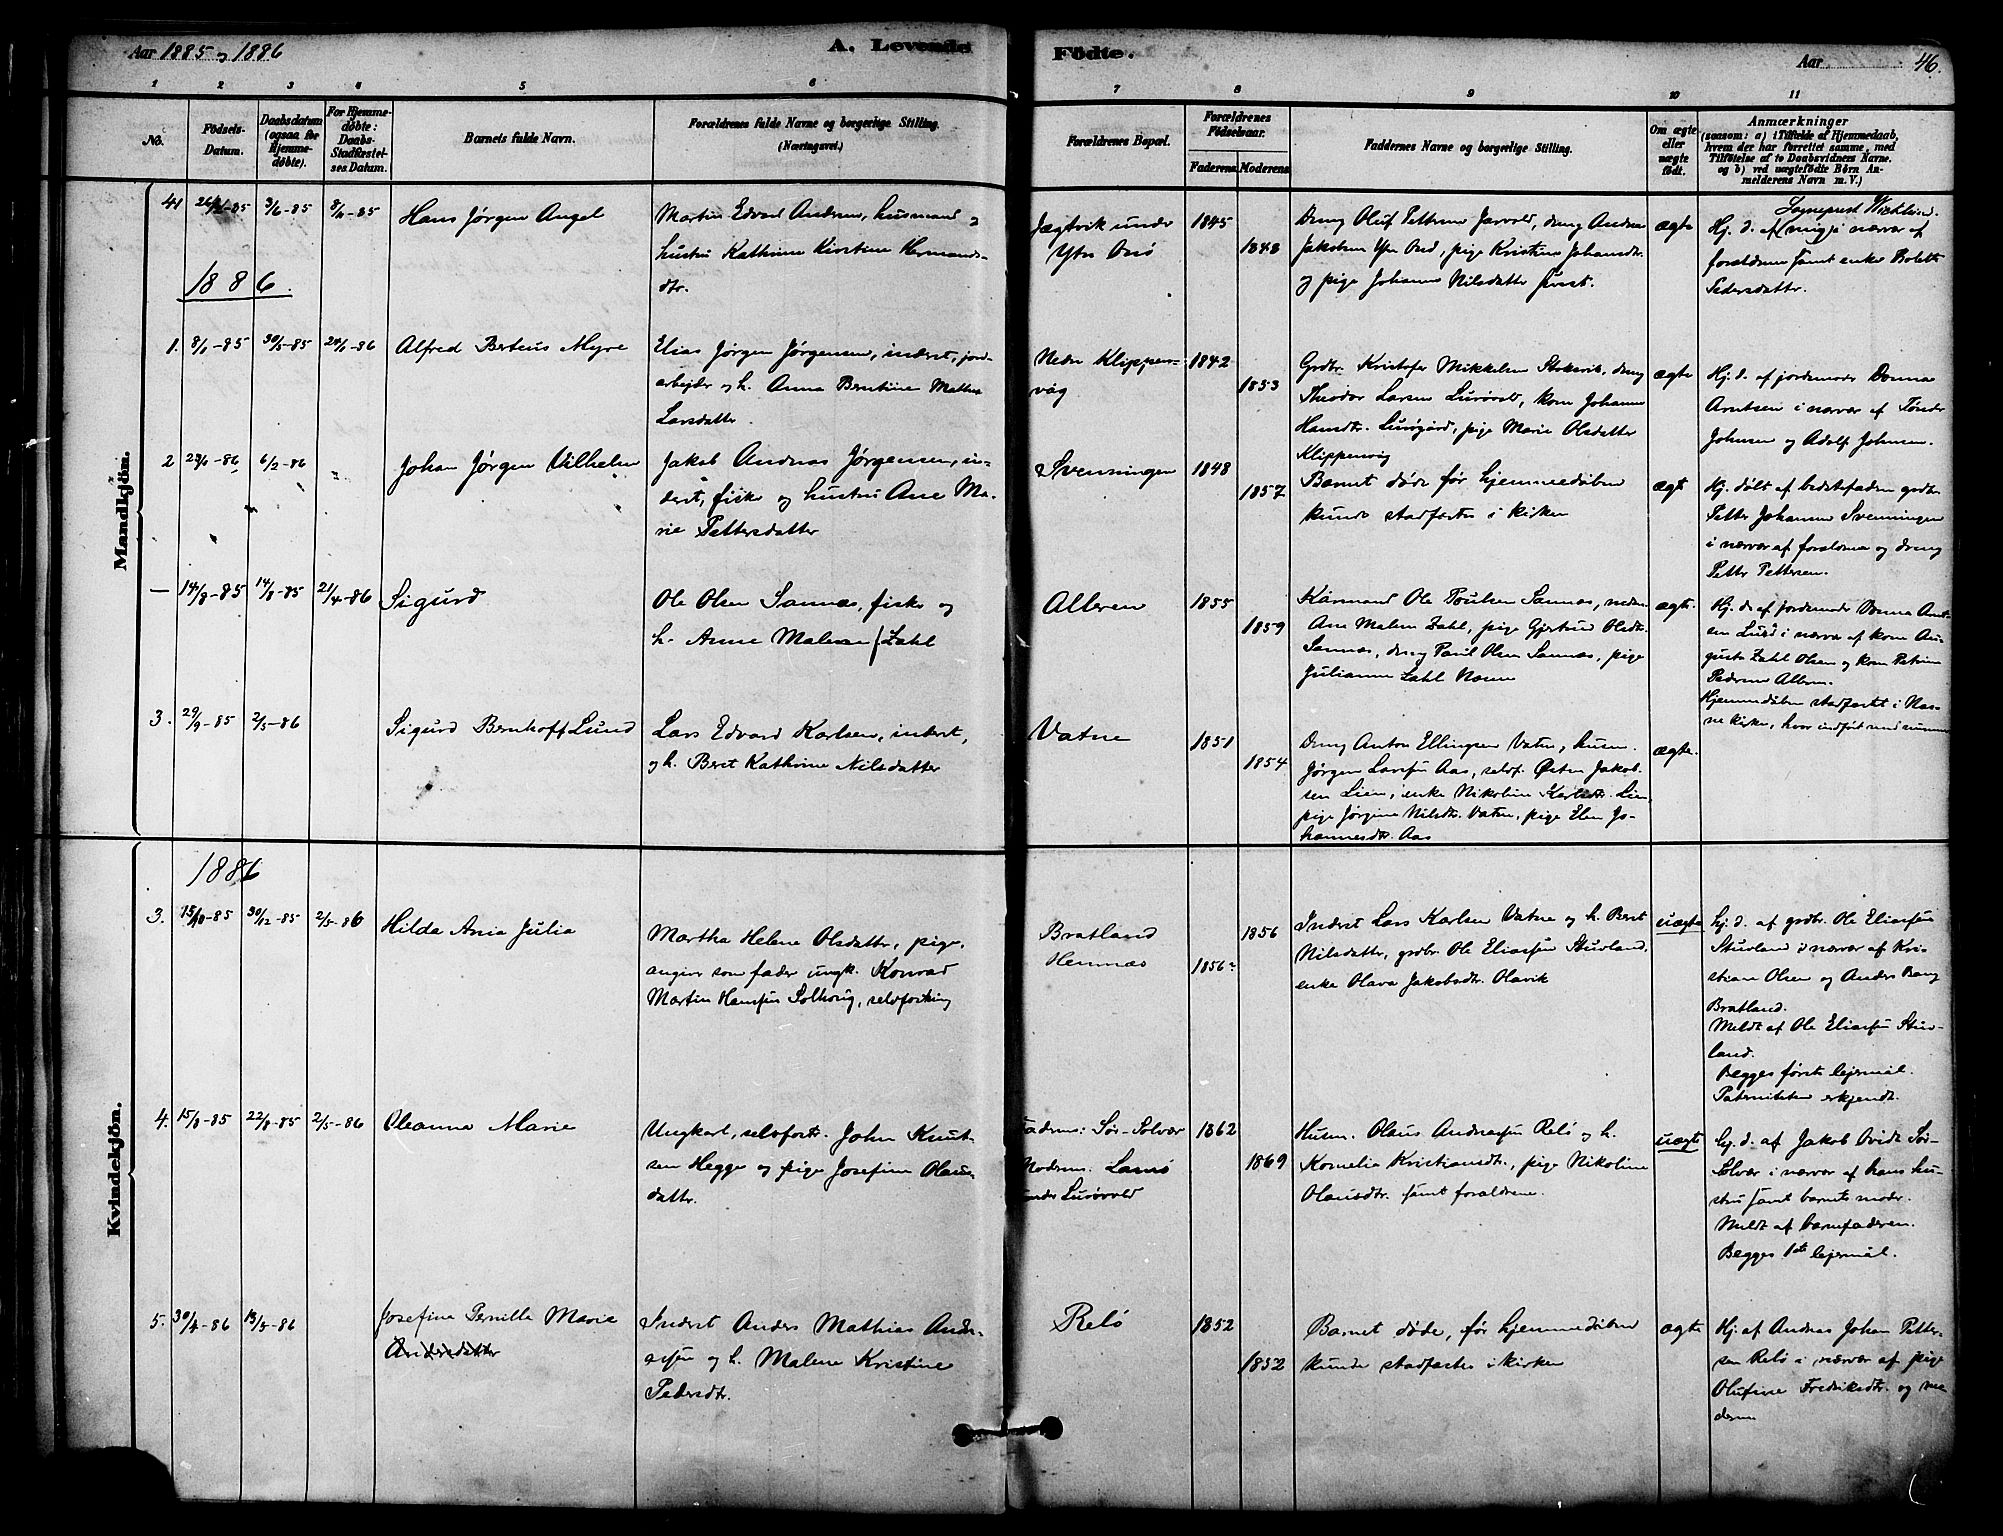 Aar 1885 og 1886
A. Levende Födte.
Aar
46.
1 2 3 4 5 6 7 8 9 10 11
No.
Födsels-Datum.
Daabsdatum (ogsaa for Hjemme-døbte).
For Hjemme-døbte: Daabs-Stadfæstel-ses Datum.
Barnets fulde Navn.
Forældrenes fulde Navne og borgerlige Stilling. (Næringsvei.)
Forældrenes Bopæl.
Forældrenes Födselsaar.
Faderens Moderens
Faddernes Navne og borgerlige Stilling.
Om ægte eller uægte födt.
Anmærkninger
(saasom: a) i Tilfælde af Hjemmedaab,
hvem der har forrettet samme, med
Tilföielse af to Daabsvidners Navne.
og b) ved uægtefödte Börn An-
melderens Navn m. V.)
Mandkjön.
41 3/6-85 Hans Jørgen Angel
Martin Edvard Andersen, husmand og
hustru Kathrine Kirstine Hermands-
dtr.
Jægtvik under
Ytre Onø
1845
1848
Dreng Oluf Pettersen Jarvold, dreng Andreas
Jakobsen Ytre Onø, pige Kristine Johansdtr.
og pige Johanna Nilsdatter
ægte
Sogneprest
Hj. d. af (mig) i nærvær af
forældrene samt enke Bolette
Pedersdatter.
1886.
1. 8/1-85 30/5-85 24/1-86 Alfred Berteus Myre
Elias Jørgen Jørgensen, inderst, jord-
arbejder og h. Anna Berntine Mathea
Larsdatter.
Nedre Klippen-
våg
1842
1853
Grdbr. Kristofer Mikkelsen Stokvik, dreng
Theodor Larsen Lurøvold, kone Johanna
Hansdtr. Lurøgård, pige Marie Olsdatter
Klippenvåg
ægte
Hj. d. af jordemoder Donna
Arntsen i nærvær af Tønder
Johnsen og Adolf Johnsen.
2 29/1-86 6/2-86 " Johan Jørgen Vilhelm
Jakob Andreas Jørgensen, in-
derst, fisker og hustru Ane Ma-
rie Pettersdatter
Svenningen
1848
1857
Barnet døde før hjemmedåben
kunde stadfæstes i kirken
ægte
Hj. døbt af bedstefaderen grdbr.
Petter Johannesen Svenningen
i nærvær af forældrene og dreng
Petter Pettersen.
— 14/8-85 14/8-85 21/4-86 Sigurd
Ole Olsen Sannæs, fisker og
h. Anne Malene f. Zahl
Alleren
1855
1859
Kårmand Ole Poulsen Sannæs,
Ane Malene Zahl, pige Gjertrud Olsdtr.
Sannæs, dreng Paul Olsen Sannæs, pige
Julianne Zahl Næsne
ægte.
Hj. d. af jordemoder Donna Arnt-
sen Lurø i nærvær af kone Au-
gusta Zahl Olsen og kone Petrine
Pedersen Alleren.
Hjemmedåben stadfæstet i Næs-
ne kirke, hvor indført med nummer
3. 29/9-85 2/5-86 Sigurd Bernhoff Lund
Lars Edvard Karlsen, inderst,
og h. Beret Kathrine Nilsdatter
Vatne
1851
1854
Dreng Anton Ellingsen Vatne, husm.
Jørgen Larsen Aas, selvf. Østen Jakob-
sen Lien, enke Nikoline Karlsdtr. Lien,
pige Jørgine Nilsdtr. Vatne, pige Elen Jo-
hannesdtr. Aas
ægte.
Kvindekjön.
1886
3. 15/10-85 30/12-85 2/5-86 Hilda Ania Julia
Martha Helene Olsdatter, pige,
angiver som fader ungk. Konrad
Martin Hansen Solhoug, selvforsørg
Bratland
Hemnæs
1856
1856
Inderst Lars Karlsen Vatne og h. Beret
Nilsdatter, grdbr. Ole Eliassen Sturland,
enke Olava Jakobsdtr. Olavik
uægte
Hj. d. af grdbr. Ole Eliassen
Sturland i nærvær af Kri-
stian Olsen og Anders Bang
Bratland.
Meldt af Ole Eliassen Stur-
land.
Begges første lejermål.
Paterniteten erkjendt.
4. 15/8-85 22/8-85 2/5-86 Oleanna Marie
Ungkarl, selvfors. John Knut-
sen Hegge og pige Josefine Olaus-
datter.
Faderens: Sør-Solvær
Moderens: Lamø
under Lurøvold
1862
1869
Husm. Olaus Andreassen Relø og h.
Kornelia Kristiansdtr., pige Nikoline
Olausdtr. samt forældrene.
uægte
Hj. d. af Jakob Ovidt Sør-
Solvær i nærvær af hans hu-
stru samt barnets moder.
Meldt af barnefaderen.
Begges 1ste lejermål.
5. 30/4-86 13/5-86 Josefine Pernille Marie
Andersdatter
Inderst Anders Mathias Andr-
eassen og h. Malene Kristine
Pedersdtr.
Relø
1852
1852
Barnet døde, før hjemmedåben
kunde stadfæstes i kirken
ægte
Hj. af Andreas Johan Petter-
sen Relø i nærvær af pige
Olufine Fredriksdtr. og mo-
deren